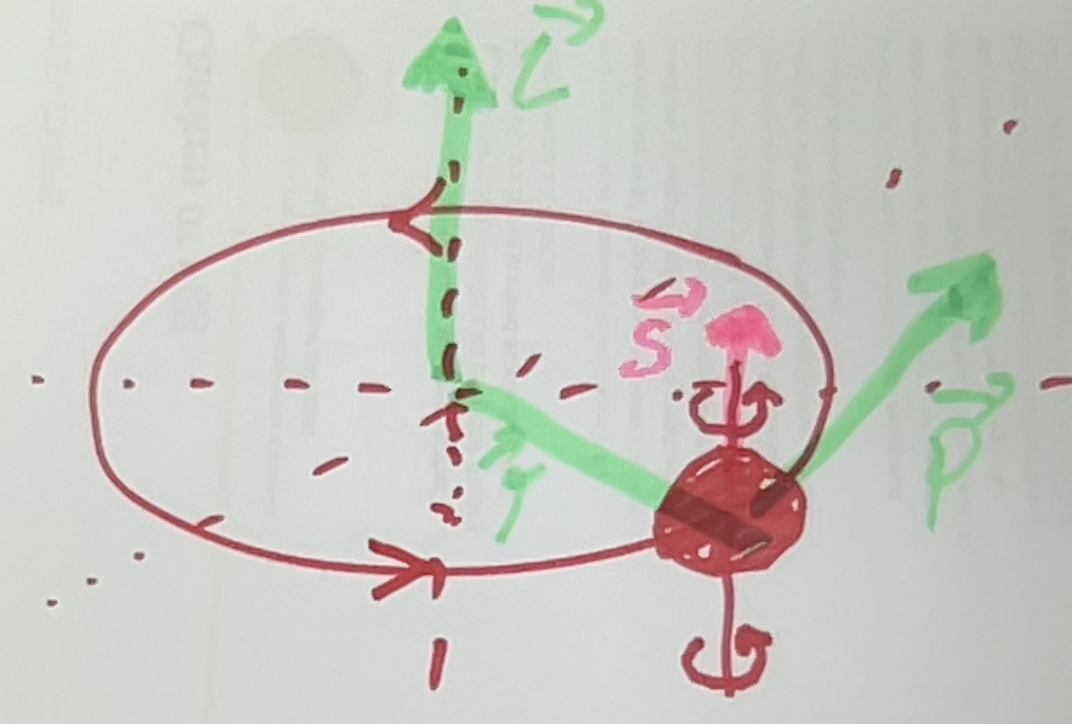 L⃗
S⃗
r⃗
p⃗